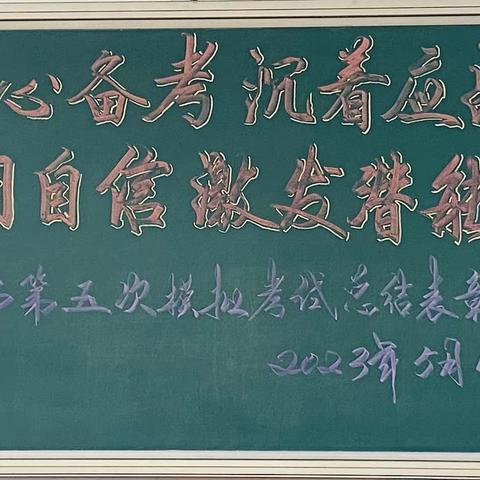 心备考 沉着应
自信 激发潜能
第五次模拟考试总结表彰
2023年5月